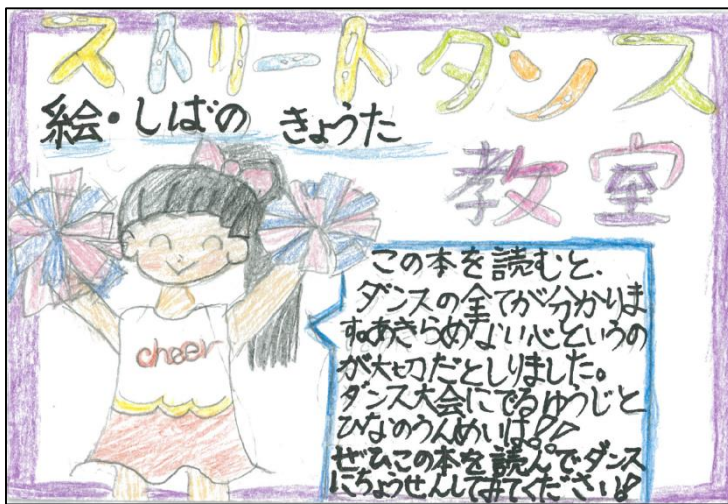 ストリートダンス
教室
絵・しばの きょうた
cheer
この本を読むと、
ダンスの全てが分かりま
す。あきらめない心というの
が大切だとしりました。
ダンス大会にでるゆうじと
ひなのうんめいは!?
ぜひこの本を読んで、ダンス
にちょうせんしてみてください!